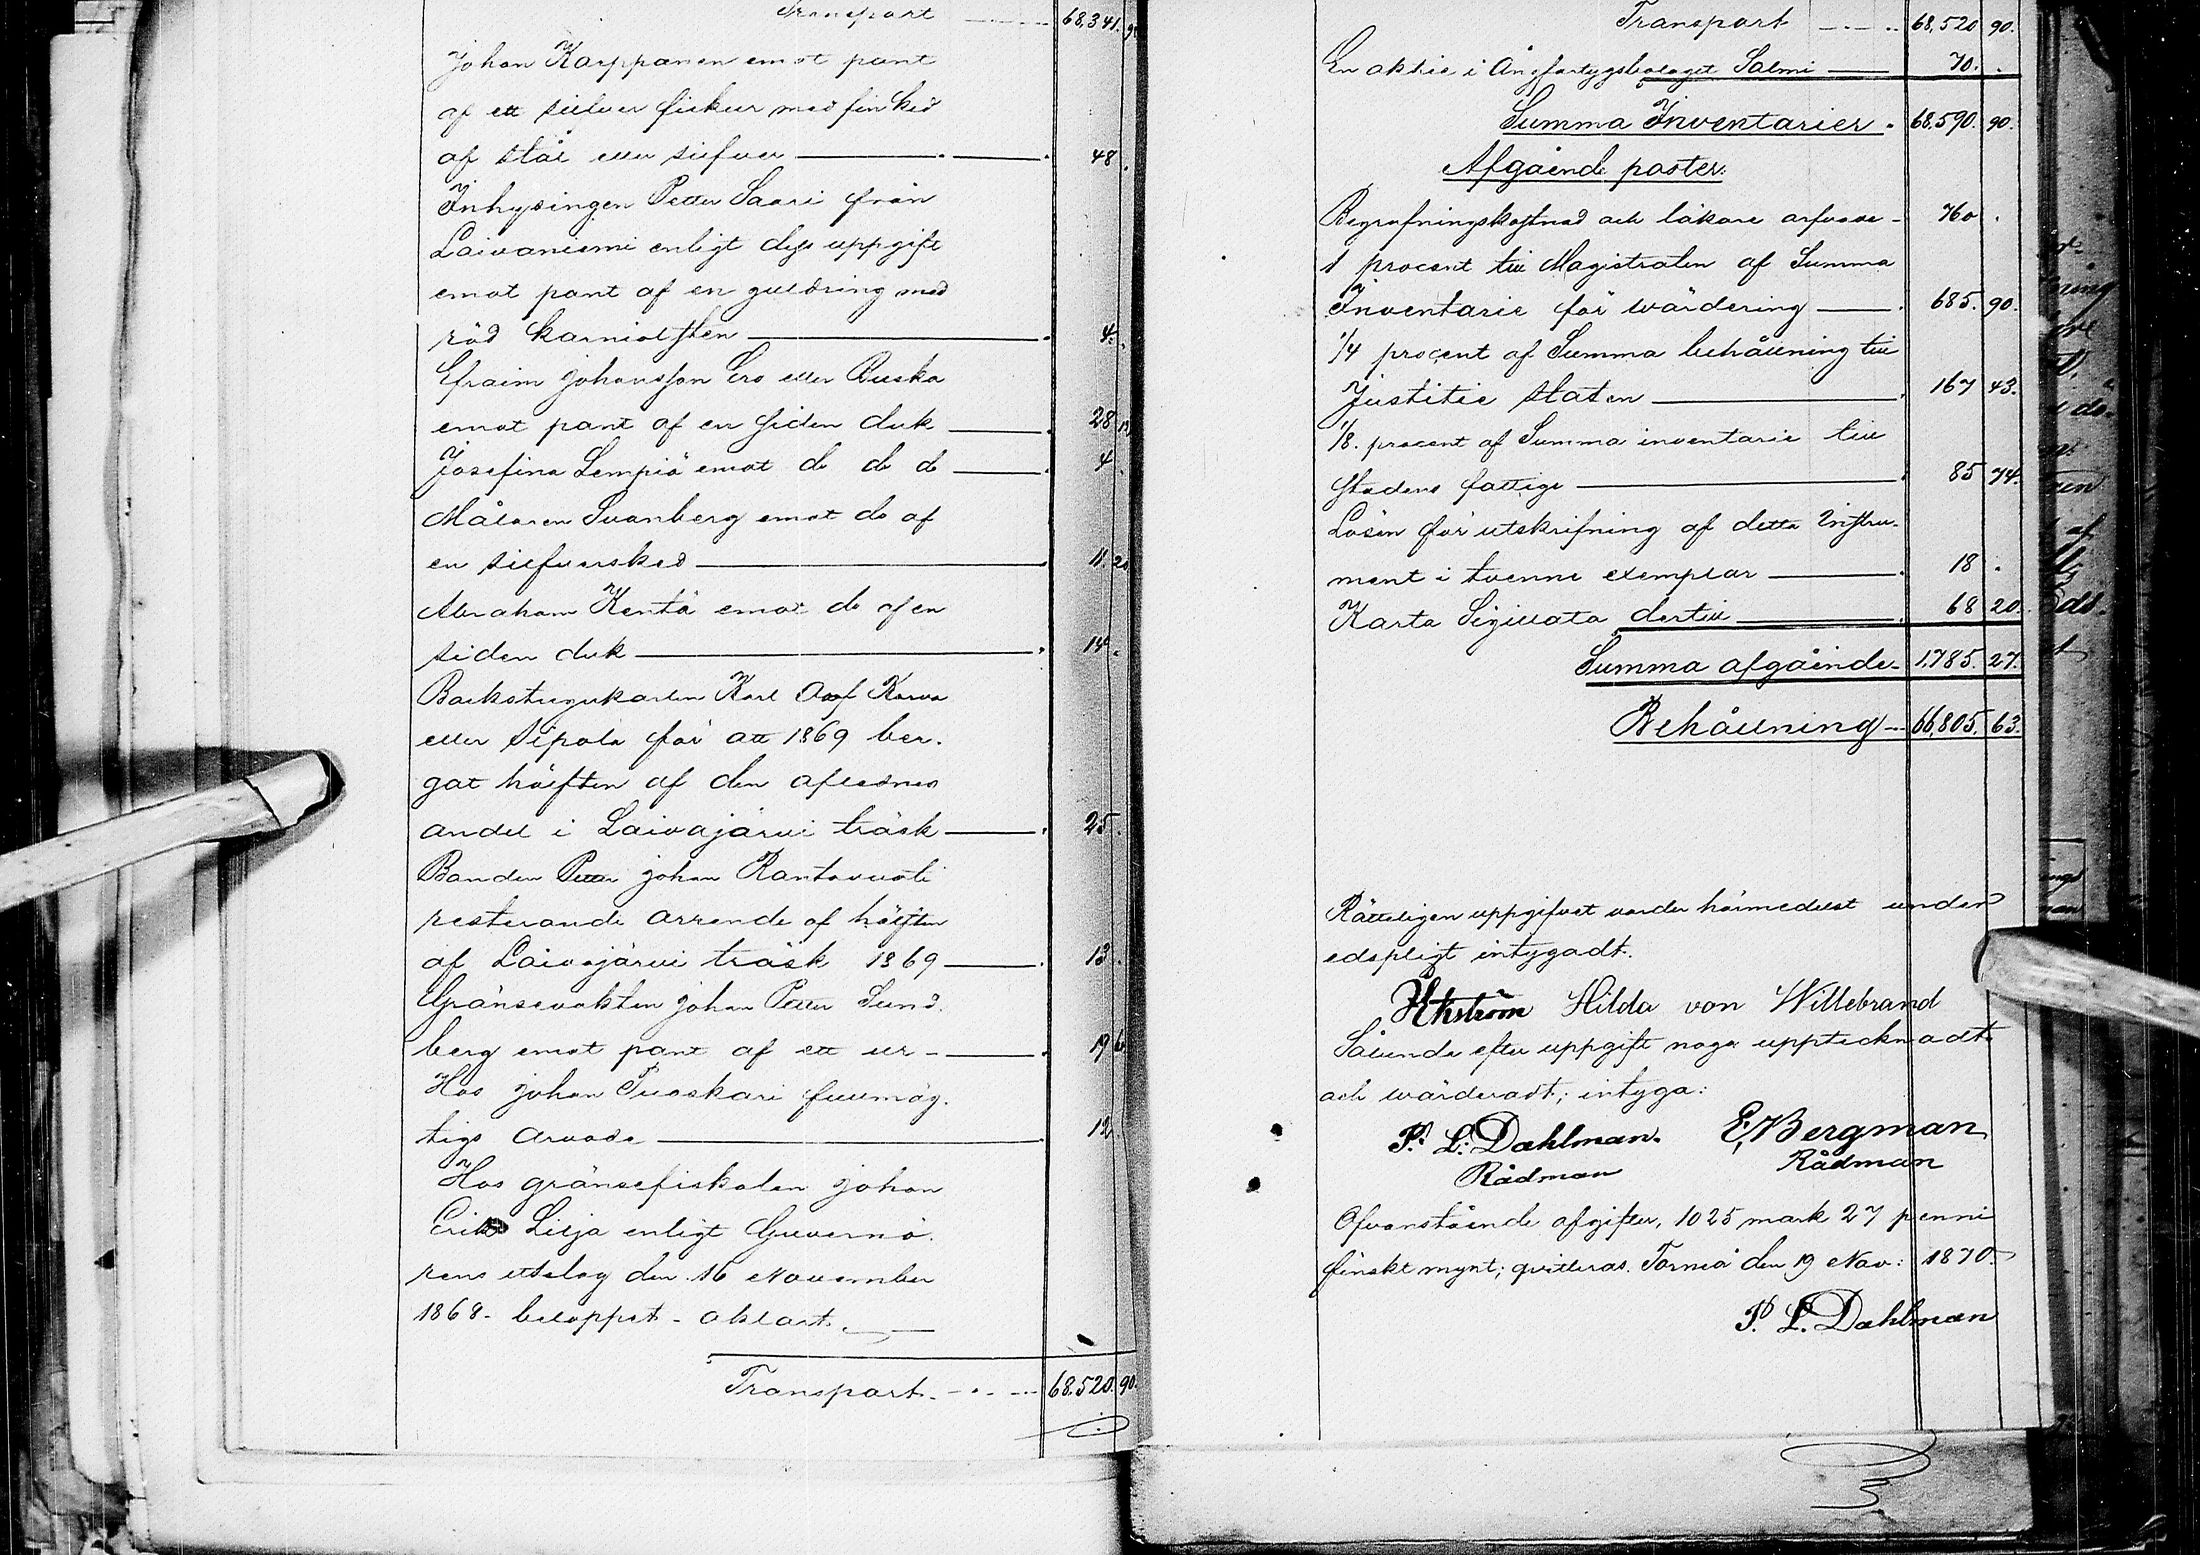 Transport 68,341. 9
Johan Karppanen emot pant
af ett silfver fickur med fin ked
af stål eller silfver 48.
Inhysingen Petter Saari från
Laivaniemi enligt dess uppgift
emot pant af en guldring med
röd karniolsten 4.
Efraim Johansson Ero eller Ruska
emot pant af en siden duk 28
Josefina Lempiö emot do do do 4
Målaren Svanberg emot do af
en silfversked 11 20
Abraham Kenta emot do af en
siden duk 14.
Backstugukarlen Karl Olof Karva
eller Sipola för att 1869 ber-
gat hälften af den aflidnes
andel i Laivajärvi träsk 25.
Bonden Petter Johan Rantavuoti
resterande arrende af hälften
af Laivajärvi träsk 1869 13.
Gränsevakten Johan Petter Sund-
berg emot pant af ett ur 19 6
Hos Johan Puoskari fullmäg-
tigs arvode 12
Hos gränsefiskalen Johan
Erik Lilja enligt Guvernö-
rens utslag den 16 November
1868. beloppet oklart.
Transport 68.520. 90.
Transport 68,520 90.
En aktie i Ångfartygsbolaget Salmi 70.
Summa Inventarier 68.590. 90.
Afgående poster.
Begrafningskostnad och läkare arfvode 760.
1 procent till Magistraten af Summa
Inventarie för wärdering 685. 90.
1/4 procent af Summa behållning till
Justitie staten 167 43.
1/8. procent af Summa inventarie till
stadens fattige 85 74.
Lösen för utskrifning af detta Instru-
ment i tvenne exemplar 18.
Karta Sigillata dertill 68 20.
Summa afgående 1,785. 27.
Behållning 66,805. 63.
Rätteligen uppgifvet varder härmedelst under
edspligt intygadt.
HEkström Hilda von Willebrand
Sålunda efter uppgift noga upptecknadt
och wärderadt; intyga:
P. L. Dahlman. E. Bergman
Rådman Rådman
Ofvanstående afgifter, 1025 mark 27 penni
finskt mynt; qvitteras. Torneå den 19 Nov: 1870.
P. L. Dahlman